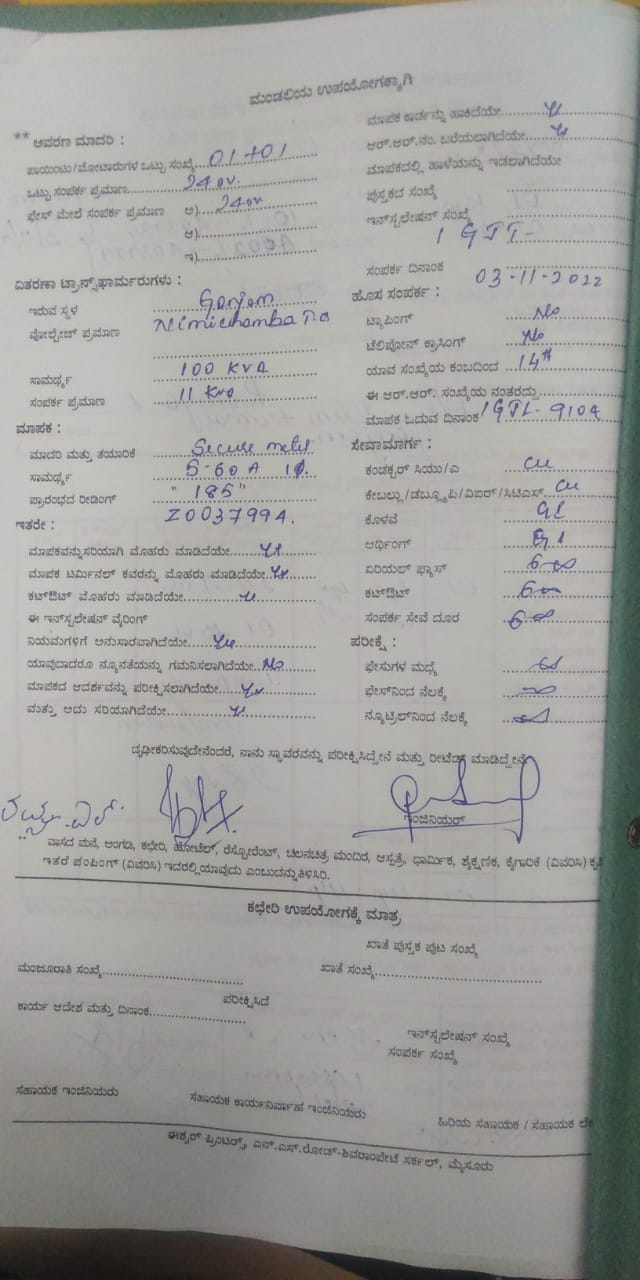 ಮಂಡಲಿಯ ಉಪಯೋಗಕ್ಕಾಗಿ
** ಆವರಣ ಮಾದರಿ :
ಪಾಯಿಂಟು/ಮೋಟಾರುಗಳ ಒಟ್ಟು ಸಂಖ್ಯೆ... 01+01
ಒಟ್ಟು ಸಂಪರ್ಕ ಪ್ರಮಾಣ... 240v.
ಫೇಸ್ ಮೇಲೆ ಸಂಪರ್ಕ ಪ್ರಮಾಣ ಅ)... 240v
ಆ)
ಇ)
ವಿತರಣಾ ಟ್ರಾನ್ಸ್‌ಫಾರ್ಮರುಗಳು :
ಇರುವ ಸ್ಥಳ Ganjam
ವೋಲ್ಟೇಜ್ ಪ್ರಮಾಣ Nimichamba
ಸಾಮರ್ಥ್ಯ 100 KVA
ಸಂಪರ್ಕ ಪ್ರಮಾಣ 11 Kv
ಮಾಪಕ :
ಮಾದರಿ ಮತ್ತು ತಯಾರಿಕೆ Secure
ಸಾಮರ್ಥ್ಯ 5-60 A
ಪ್ರಾರಂಭದ ರೀಡಿಂಗ್ "185"
Z0037994.
ಇತರೇ :
ಮಾಪಕವನ್ನು ಸರಿಯಾಗಿ ಮೊಹರು ಮಾಡಿದೆಯೇ...
ಮಾಪಕ ಟರ್ಮಿನಲ್ ಕವರನ್ನು ಮೊಹರು ಮಾಡಿದೆಯೇ...
ಕಟ್‌ಔಟ್ ಮೊಹರು ಮಾಡಿದೆಯೇ...
ಈ ಇನ್‌ಸ್ಟಲೇಷನ್ ವೈರಿಂಗ್
ನಿಯಮಗಳಿಗೆ ಅನುಸಾರವಾಗಿದೆಯೇ...
ಯಾವುದಾದರೂ ನ್ಯೂನತೆಯನ್ನು ಗಮನಿಸಲಾಗಿದೆಯೇ... No
ಮಾಪಕದ ಆದರ್ಶವನ್ನು ಪರೀಕ್ಷಿಸಲಾಗಿದೆಯೇ...
ಮತ್ತು ಅದು ಸರಿಯಾಗಿದೆಯೇ...
ಮಾಪಕ ಕಾರ್ಡನ್ನು ಹಾಕಿದೆಯೇ...
ಆರ್.ಆರ್.ನಂ. ಬರೆಯಲಾಗಿದೆಯೇ...
ಮಾಪಕದಲ್ಲಿ ಹಾಳೆಯನ್ನು ಇಡಲಾಗಿದೆಯೇ
ಪುಸ್ತಕದ ಸಂಖ್ಯೆ
ಇನ್‌ಸ್ಟಲೇಷನ್ ಸಂಖ್ಯೆ
ಸಂಪರ್ಕ ದಿನಾಂಕ 03-11-2022
ಹೊಸ ಸಂಪರ್ಕ :
ಟ್ಯಾಪಿಂಗ್ No
ಟೆಲಿಫೋನ್ ಕ್ರಾಸಿಂಗ್ No
ಯಾವ ಸಂಖ್ಯೆಯ ಕಂಬದಿಂದ 14th
ಈ ಆರ್.ಆರ್. ಸಂಖ್ಯೆಯ ನಂತರದ್ದು
ಮಾಪಕ ಓದುವ ದಿನಾಂಕ 1GTL-9104
ಸೇವಾಮಾರ್ಗ :
ಕಂಡಕ್ಟರ್ ಸಿಯು/ಎ cu
ಕೇಬಲ್ಲು/ಡಬ್ಲ್ಯೂಪಿ/ವಿಐಆರ್/ಸಿಟಿಎಸ್ cu
ಕೊಳವೆ GI
ಅರ್ಥಿಂಗ್ GI
ಏರಿಯಲ್ ಫ್ಯೂಸ್
ಕಟ್‌ಔಟ್
ಸಂಪರ್ಕ ಸೇವೆ ದೂರ
ಪರೀಕ್ಷೆ :
ಫೇಸುಗಳ ಮಧ್ಯೆ
ಫೇಸ್‌ನಿಂದ ನೆಲಕ್ಕೆ
ನ್ಯೂಟ್ರಲ್‌ನಿಂದ ನೆಲಕ್ಕೆ
ದೃಢೀಕರಿಸುವುದೇನೆಂದರೆ, ನಾನು ಸ್ಥಾವರವನ್ನು ಪರೀಕ್ಷಿಸಿದ್ದೇನೆ ಮತ್ತು ರೀಟೆಡ್ ಮಾಡಿದ್ದೇನೆ
ಇಂಜಿನಿಯರ್
** ವಾಸದ ಮನೆ, ಅಂಗಡಿ, ಕಛೇರಿ, ಹೋಟೆಲ್, ರೆಸ್ಟೋರೆಂಟ್, ಚಲನಚಿತ್ರ ಮಂದಿರ, ಆಸ್ಪತ್ರೆ, ಧಾರ್ಮಿಕ, ಶೈಕ್ಷಣಿಕ, ಕೈಗಾರಿಕೆ (ವಿವರಿಸಿ)
ಇತರೆ ಪಂಪಿಂಗ್ (ವಿವರಿಸಿ) ಇದರಲ್ಲಿ ಯಾವುದು ಎಂಬುದನ್ನು ತಿಳಿಸಿರಿ.
ಕಛೇರಿ ಉಪಯೋಗಕ್ಕೆ ಮಾತ್ರ
ಖಾತೆ ಪುಸ್ತಕ ಪುಟ ಸಂಖ್ಯೆ
ಮಂಜೂರಾತಿ ಸಂಖ್ಯೆ...
ಖಾತೆ ಸಂಖ್ಯೆ...
ಪರೀಕ್ಷಿಸಿದೆ
ಕಾರ್ಯ ಆದೇಶ ಮತ್ತು ದಿನಾಂಕ...
ಇನ್‌ಸ್ಟಲೇಷನ್ ಸಂಖ್ಯೆ
ಸಂಪರ್ಕ ಸಂಖ್ಯೆ
ಸಹಾಯಕ ಇಂಜಿನಿಯರು
ಸಹಾಯಕ ಕಾರ್ಯನಿರ್ವಾಹ ಇಂಜಿನಿಯರು
ಹಿರಿಯ ಸಹಾಯಕ / ಸಹಾಯಕ ಲೆಕ
ಈಶ್ವರ್ ಪ್ರಿಂಟರ್ಸ್, ಎನ್.ಎಸ್.ರೋಡ್-ಶಿವರಾಂಪೇಟೆ ಸರ್ಕಲ್, ಮೈಸೂರು